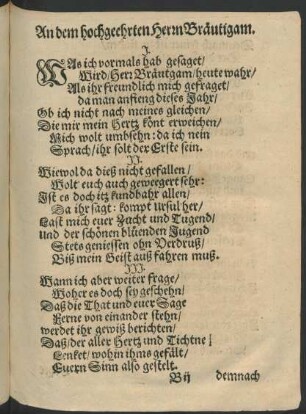 An dem hochgeehrten Herrn Bräutigam.
I.
WAs ich vormals hab gesaget/
Wird/Herr Bräutgam/heute wahr/
Als ihr freundlich mich gefraget/
da man anfieng dieses Jahr/
Ob ich nicht nach meines gleichen/
Die mir mein Hertz könt erweichen/
Mich wolt umbsehn: da ich nein
Sprach/ihr solt der Erste sein.
II.
Wiewol da dieß nicht gefallen/
Wolt euch auch geweegert sehr:
Ist es doch itz kundbahr allen/
Da ihr sagt: kompt Ursul her/
Last mich euer Zucht und Tugend/
Und der schönen blüenden Jugend
Stets geniessen ohn Verdruß/
Biß mein Geist auß fahren muß.
III.
Wann ich aber weiter frage/
Woher es doch sey geschehn/
Daß die That und eure Sage
Ferne von einander stehn/
werdet ihr gewiß berichten/
Daß/der aller Hertz und Tichtne/
Lencket/wohin ihms gefält/
Euern Sinn also gestelt.
Bij demnach